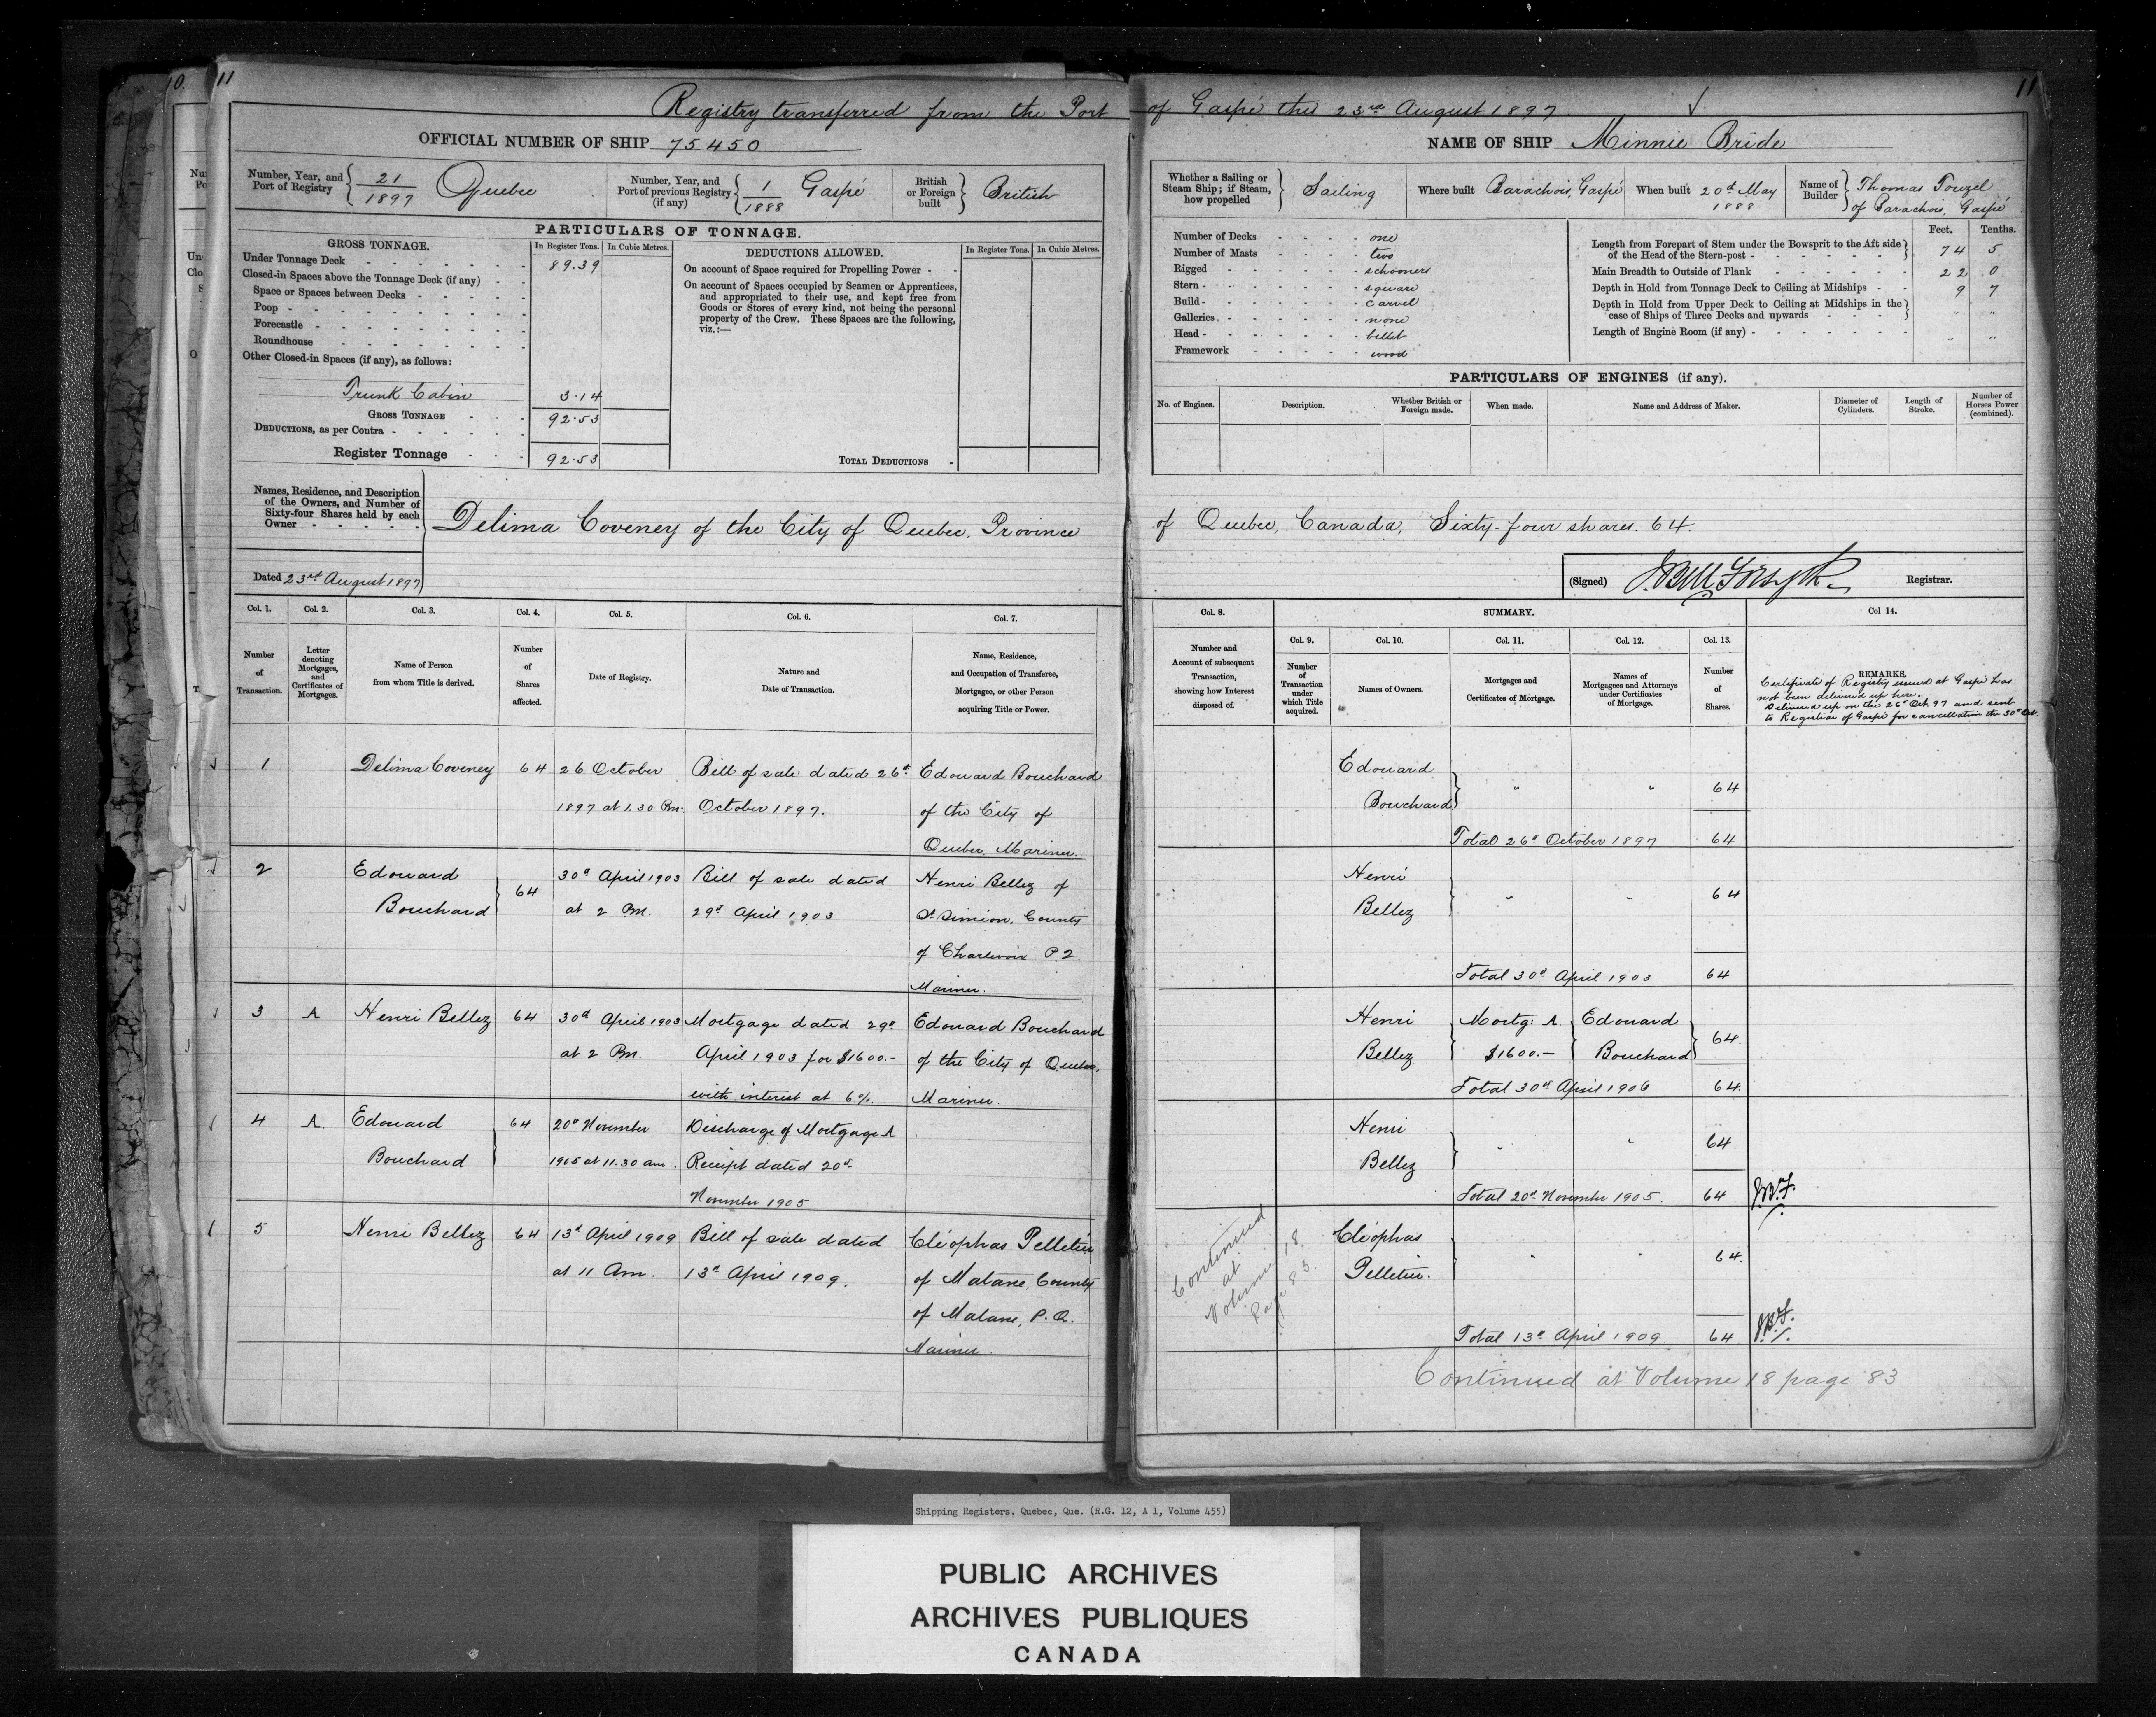 10.
11
11
Registry transferred from the Port of Gaspé this 23rd August 1897
OFFICIAL NUMBER OF SHIP 75450
NAME OF SHIP Minnie Bride
Number, Year, and Port of Registry 21/1897 Quebec
Number, Year, and Port of previous Registry (if any) 1/1888 Gaspé
British or Foreign built British
PARTICULARS OF TONNAGE.
GROSS TONNAGE.
In Register Tons. In Cubic Metres.
Under Tonnage Deck 89.39
Closed-in Spaces above the Tonnage Deck (if any)
Space or Spaces between Decks
Poop
Forecastle
Roundhouse
Other Closed-in Spaces (if any), as follows:
Trunk Cabin 3.14
GROSS TONNAGE 92.53
DEDUCTIONS, as per Contra
Register Tonnage 92.53
DEDUCTIONS ALLOWED.
In Register Tons. In Cubic Metres.
On account of Space required for Propelling Power
On account of Spaces occupied by Seamen or Apprentices,
and appropriated to their use, and kept free from
Goods or Stores of every kind, not being the personal
property of the Crew. These Spaces are the following,
viz.:—
TOTAL DEDUCTIONS
Whether a Sailing or Steam Ship; if Steam, how propelled Sailing
Where built Barachois, Gaspé
When built 20th May 1888
Name of Builder Thomas Touzel of Barachois, Gaspé
Number of Decks one
Number of Masts two
Rigged schooner
Stern square
Build carvel
Galleries none
Head billet
Framework wood
Feet. Tenths.
Length from Forepart of Stem under the Bowsprit to the Aft side of the Head of the Stern-post 74 5
Main Breadth to Outside of Plank 22 0
Depth in Hold from Tonnage Deck to Ceiling at Midships 9 7
Depth in Hold from Upper Deck to Ceiling at Midships in the case of Ships of Three Decks and upwards " "
Length of Engine Room (if any) " "
PARTICULARS OF ENGINES (if any).
No. of Engines. Description. Whether British or Foreign made. When made. Name and Address of Maker. Diameter of Cylinders. Length of Stroke. Number of Horses Power (combined).
Names, Residence, and Description of the Owners, and Number of Sixty-four Shares held by each Owner
Delima Coveney of the City of Quebec, Province of Quebec, Canada, Sixty-four shares. 64.
Dated 23rd August 1897
(Signed) J. Bell Forsyth Registrar.
Col. 1. Col. 2. Col. 3. Col. 4. Col. 5. Col. 6. Col. 7.
Number of Transaction.
Letter denoting Mortgages, and Certificates of Mortgages.
Name of Person from whom Title is derived.
Number of Shares affected.
Date of Registry.
Nature and Date of Transaction.
Name, Residence, and Occupation of Transferee, Mortgagee, or other Person acquiring Title or Power.
Col. 8. SUMMARY. Col 14.
Col. 9. Col. 10. Col. 11. Col. 12. Col. 13.
Number and Account of subsequent Transaction, showing how Interest disposed of.
Number of Transaction under which Title acquired.
Names of Owners.
Mortgages and Certificates of Mortgage.
Names of Mortgagees and Attorneys under Certificates of Mortgage.
Number of Shares.
REMARKS.
Certificate of Registry issued at Gaspé has
not been delivered up here.
Delivered up on the 26th Oct. 97 and sent
to Registrar of Gaspé for cancellation the 30th Oct.
1 Delima Coveney 64 26 October Bill of sale dated 26th Edouard Bouchard
1897 at 1.30 Pm. October 1897. of the City of
Quebec, Mariner.
Edouard Bouchard " " 64
Total 26th October 1897 64
2 Edouard Bouchard 64 30th April 1903 Bill of sale dated Henri Bellez of
at 2 Pm. 29th April 1903 St Simion, County
of Charlevoix P.Q.
Mariner.
Henri Bellez " " 64
Total 30th April 1903 64
3 A Henri Bellez 64 30th April 1903 Mortgage dated 29th Edouard Bouchard
at 2 Pm. April 1903 for $1600.- of the City of Quebec,
with interest at 6%. Mariner.
Henri Bellez Mortg: A. $1600.— Edouard Bouchard 64.
Total 30th April 1906 64.
4 A. Edouard Bouchard 64 20th November Discharge of Mortgage A
1905 at 11.30 am. Receipt dated 20th
November 1905
Henri Bellez " " 64
Total 20th November 1905. 64 J.B.F.
5 Henri Bellez 64 13th April 1909 Bill of sale dated Cléophas Pelletier
at 11 Am. 13th April 1909. of Matane, County
of Matane, P.Q.
Mariner.
Continued at Volume 18. Page 83.
Cléophas Pelletier. " " 64.
Total 13th April 1909. 64 J.B.F.
Continued at Volume 18 page 83
Shipping Registers. Quebec, Que. (R.G. 12, A 1, Volume 455)
PUBLIC ARCHIVES
ARCHIVES PUBLIQUES
CANADA